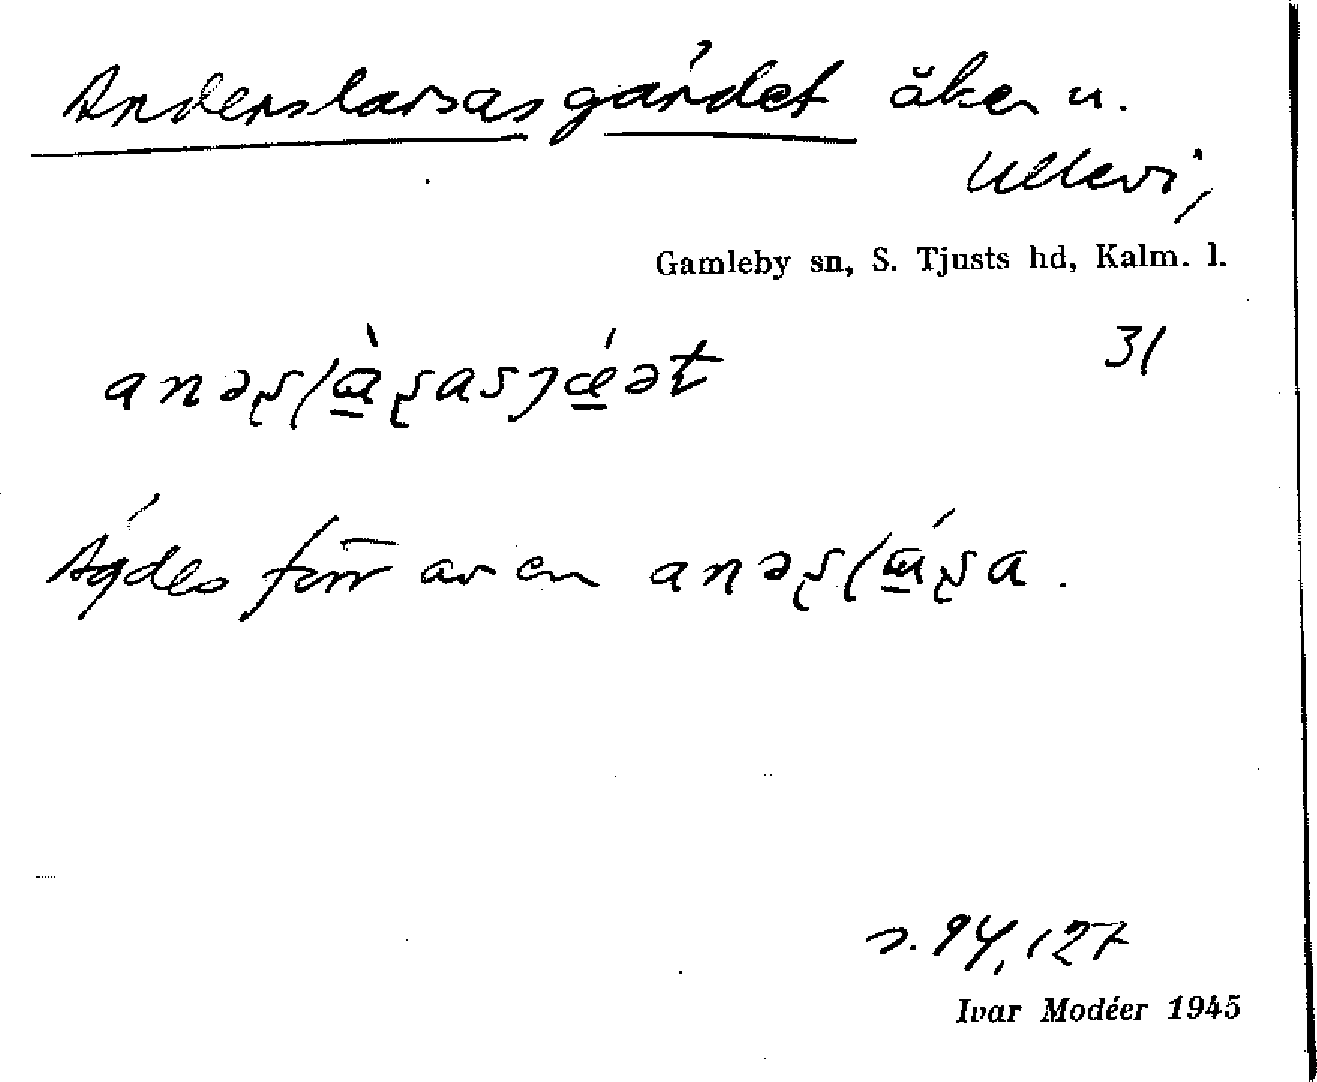 Anderslarsas gärdet åker u.
Ullevi,
Gamleby sn, S. Tjusts hd, Kalm. l.
31
Ägdes förr av en
s. 94, 127
Ivar Modéer 1945